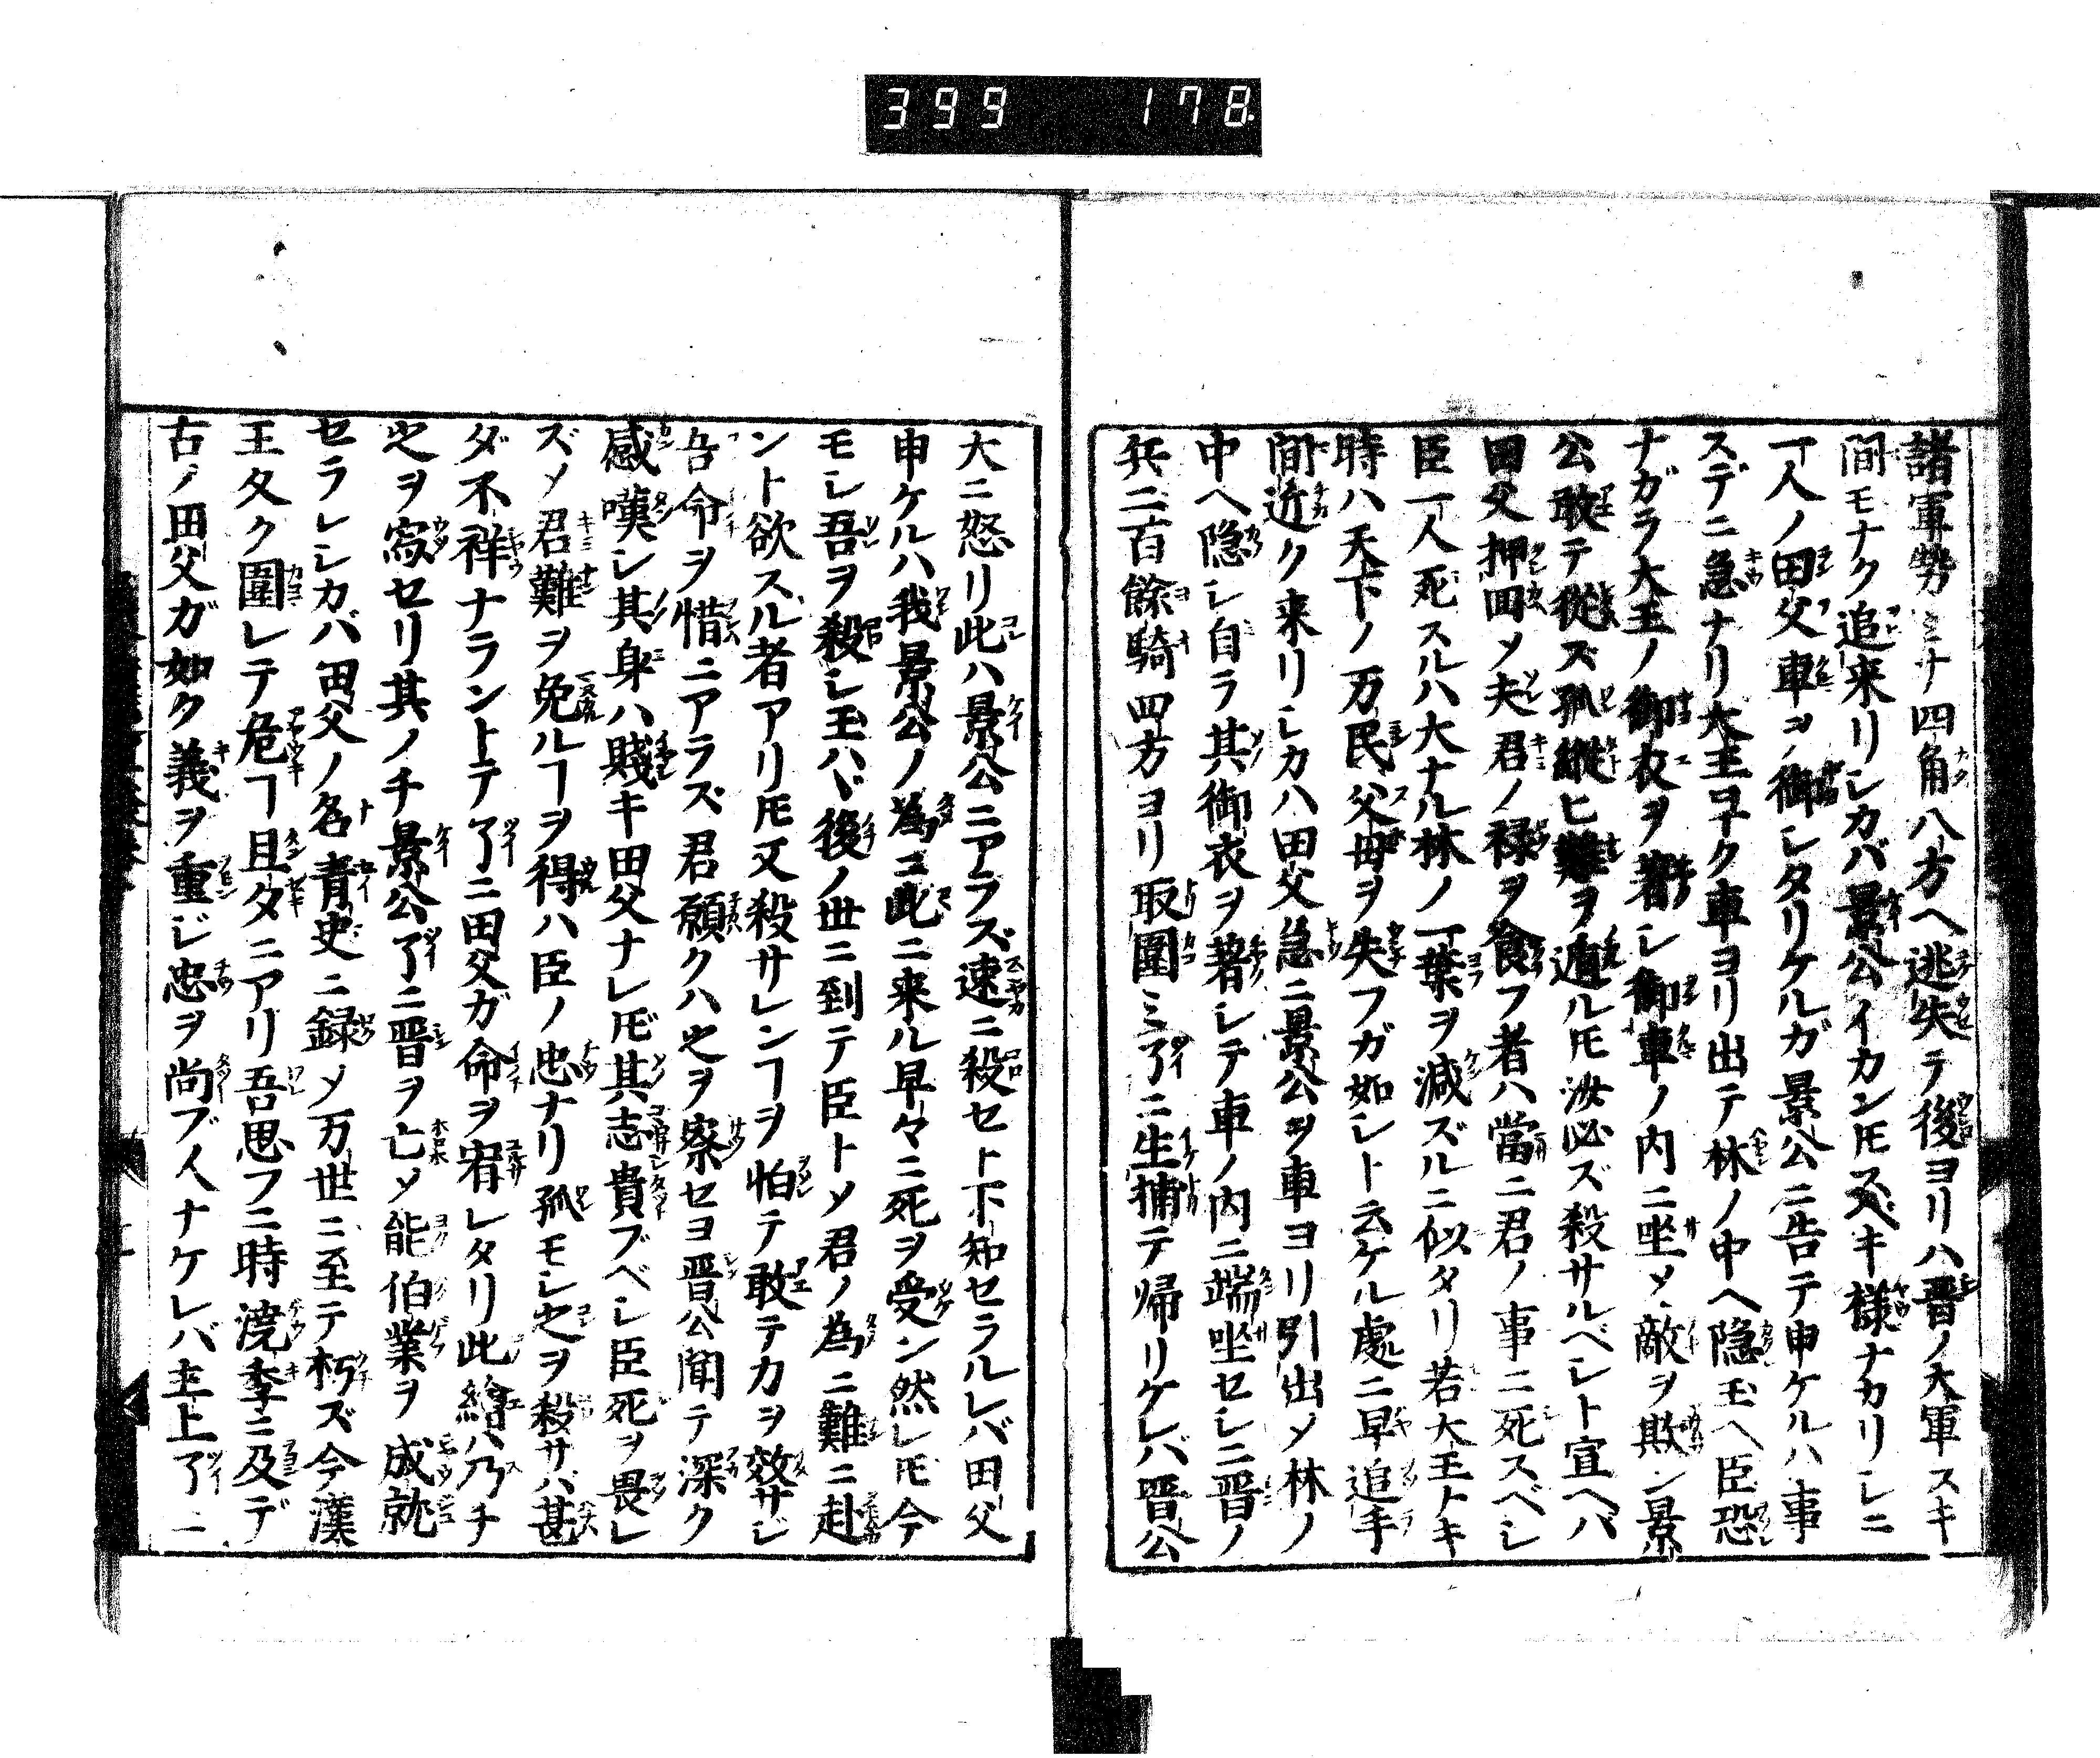 399 178
諸軍勢ミナ四角八方ヘ逃失テ後ヨリハ晋ノ大軍スキ
間モナク追来リシカバ景公イカントモスベキ様ナカリシニ
一人ノ田父車ヲ御シタリケルガ景公ニ告テ申ケルハ事
スデニ急ナリ大王早ク車ヨリ出テ林ノ中ヘ隠玉ヘ臣恐
ナガラ大王ノ御衣ヲ著シ御車ノ内ニ坐メ敵ヲ欺ン景
公敢テ従ズ孤縦ヒ難ヲ遁ルトモ汝必ズ殺サルベシト宣ヘバ
田父押回メ夫君ノ禄ヲ食フ者ハ當ニ君ノ事ニ死スベシ
臣一人死スルハ大ナル林ノ一葉ヲ減ズルニ似タリ若大王トキ
時ハ天下ノ万民父母ヲ失フガ如シト云ケル處ニ早追手
間近ク来リシカハ田父急ニ景公ヲ車ヨリ引出メ林ノ
中ヘ隠シ自ラ其御衣ヲ著シテ車ノ内ニ端坐セシニ晋ノ
兵二百餘騎四方ヨリ取圍ミ了ニ生捕テ帰リケレバ晋公
大ニ怒リ此ハ景公ニアラズ速ニ殺セト下知セラルレバ田父
申ケルハ我景公ノ為ニ此ニ来ル早々ニ死ヲ受ン然レトモ今
モシ吾ヲ殺シ玉ハヾ後ノ世ニ到テ臣トメ君ノ為ニ難ニ赴
ント欲スル者アリトモ又殺サレンヿヲ怕テ敢テカヲ效サジ
吾命ヲ惜ニアラズ君願クハ之ヲ察セヨ晋公聞テ深ク
感嘆シ其身ハ賤キ田父ナレドモ其志貴ブベシ臣死ヲ畏レ
ズメ君難ヲ免ルヿヲ得ハ臣ノ忠ナリ孤モシ之ヲ殺サバ甚
ダ不祥ナラントテ了ニ田父ガ命ヲ宥レタリ此繪ハ乃チ
之ヲ寫セリ其ノチ景公了ニ晋ヲ亡メ能伯業ヲ成就
セラレシカバ田父ノ名青史ニ録メ万世ニ至テ朽ズ今漢
王タク圍レテ危ヿ且タニアリ吾思フニ時澆季ニ及デ
古ノ田父ガ如ク義ヲ重ジ忠ヲ尚ブ人ナケレバ主上了ニ